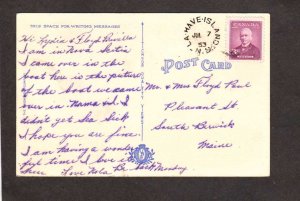 THIS SPACE FOR WRITING MESSAGES
Hi Lydia & Floyd
I am in Nova Scotia
I came over in the
boat here is the picture
of the boat we came
over in. Mama & I
didn't get Sea Sick
I hope you are fine
I am having a wonder
ful time I love it
Love
back Monday
LA HAVE ISLAND
JUL
53
N.S.
CANADA
POST CARD
Mr. & Mrs Floyd Paul
Pleasant St
South Berwick
Maine